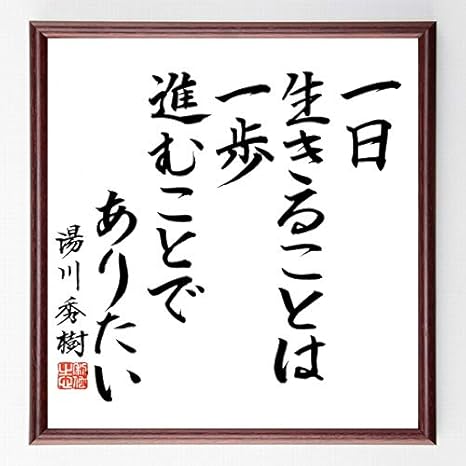 一日
生きることは
一歩
進むことで
ありたい
湯川秀樹